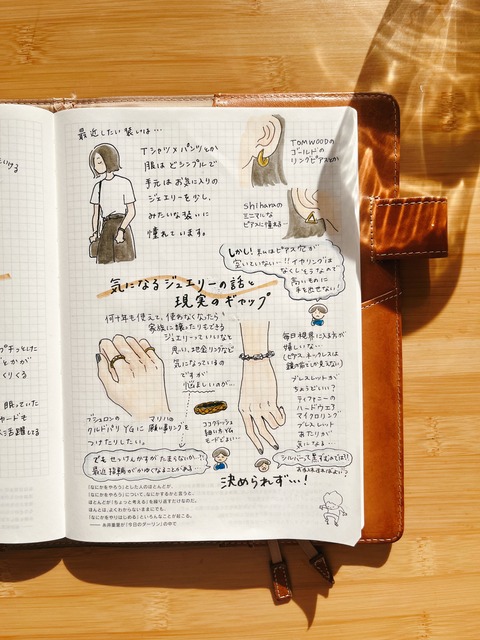 最近したい装いは…
Tシャツ×パンツとか
服はどシンプルで
手元はお気に入りの
ジュエリーを少し、
みたいな装いに
憧れています。
TOMWOODの
ゴールドの
リングピアスとか
shiharaの
ミニマルな
ピアスに憧れる…
しかし!まずはピアス穴が
空いていない…!!イヤリングは
なくしそうなので
高いものに
手を出せない!
気になるジュエリーの話と
現実のギャップ
何十年も使えて、使わなくなったら
家族に譲ったりもできる
ジュエリーっていいなと
思い、地金リングなど
気になっているの
ですが
悩ましいのが…
ブシュロンの
クルドパリ YGに
マリハの
願い事リングを
つけたりしたい。
ココクラッシュ
細い方YGも
モードでよい…
毎日視界に入る方が
嬉しいな…
(ピアス、ネックレスは
鏡の前でしか見えない)
ブレスレットが
ちょうどいい?
ティファニーの
ハードウェア
マイクロリング
ブレスレット
あたりが
気になる…
でもせっけんカスがたまらないか…!?
最近指輪がかゆくなることがある…
シルバーって黒ずむのでは!?
決められず…!
「なにかをやろう」とした人のほとんどが、
「なにかをやろう」について、なにかするかと言うと、
ほとんどが「ちょっと考える」を繰り返すだけなのだ。
ほんとは、よくわからないままにでも、
「なにかをやりはじめる」といろんなことが起こる。
—— 糸井重里が「今日のダーリン」の中で
プチッとした
とかが
くりくる
眠っていた
ードも
に活躍してる